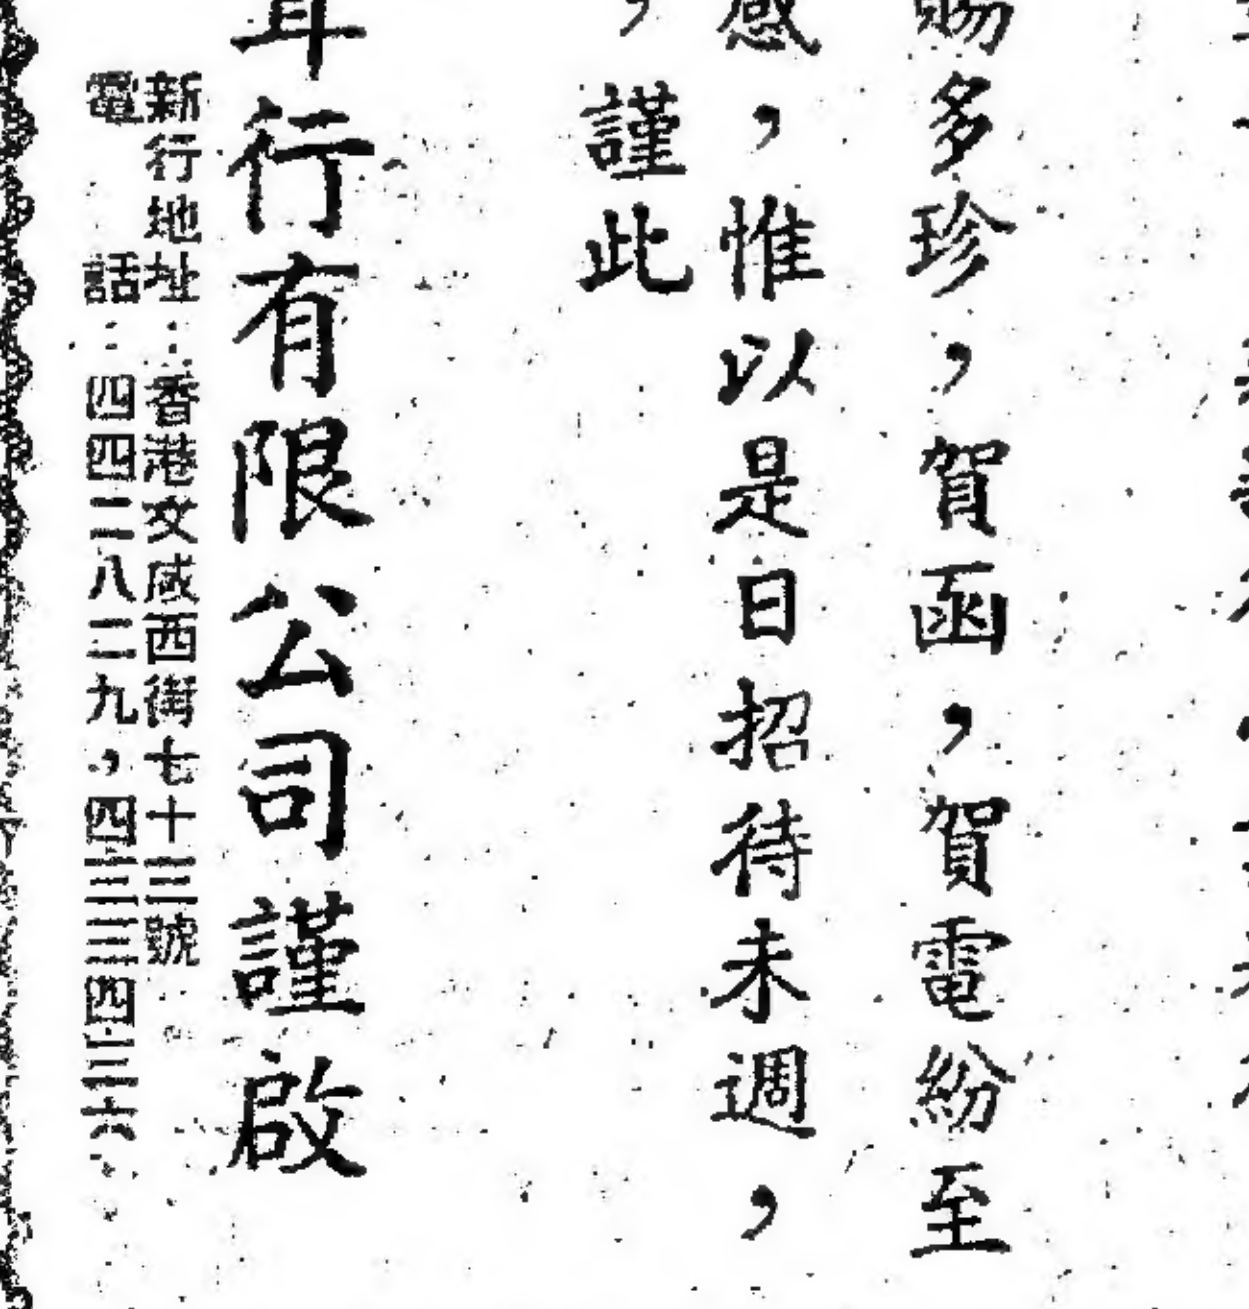 賜多珍，賀函，賀電紛至
感，惟以是日招待未週，
，謹此
行有限公司謹啟
新行地址：香港文咸西街七十三號。
電話：四四二八二九，四三三四三六。